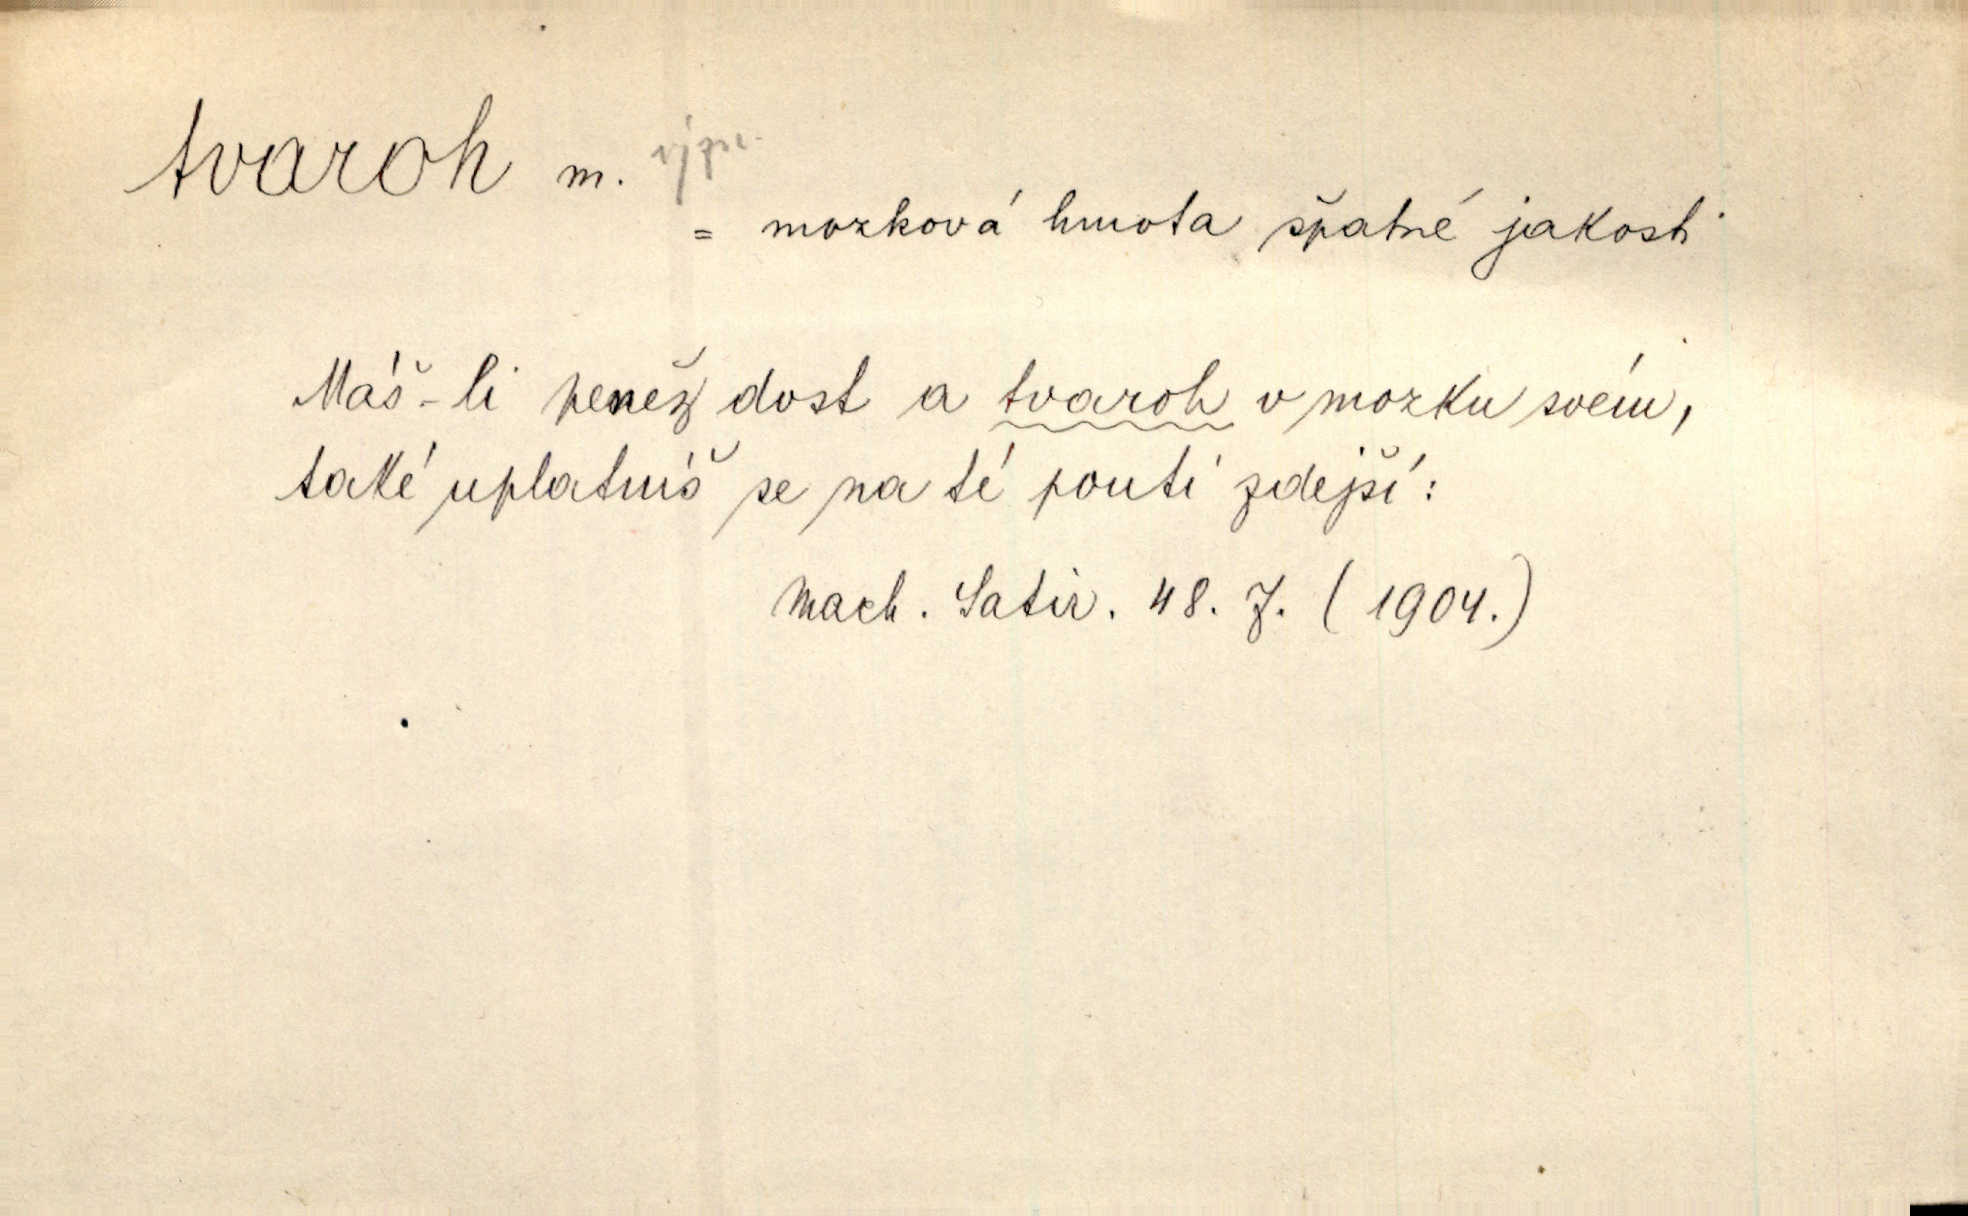 tvaroh m.
= mozková hmota špatné jakosti
Máš-li peněz dost a tvaroh v mozku svém,
také uplatníš se na té pouti zdejší:
Mach. Satir. 48. J. (1904.)